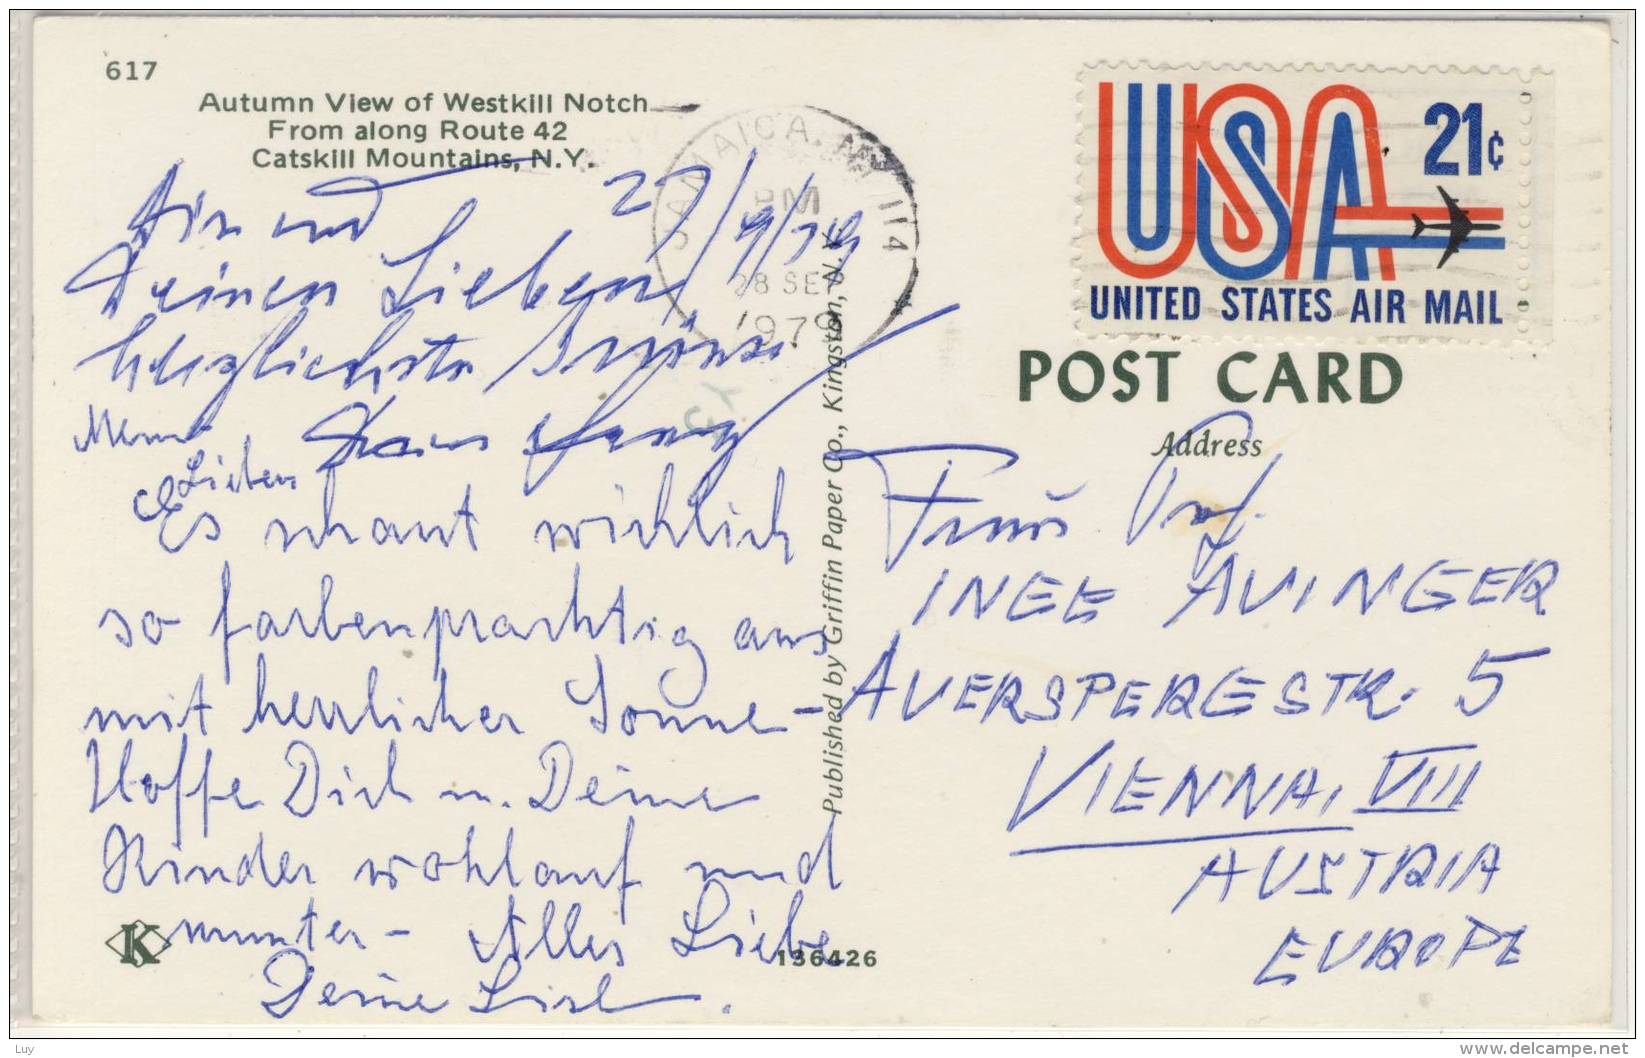 617
Autumn View of Westkill Notch
From along Route 42
Catskill Mountains, N.Y.
JAMAICA, 114
PM
28 SEP
1979
USA 21¢
UNITED STATES AIR MAIL
POST CARD
Address
Dir und 27/9/79
Deinen Lieben
herzlichste Grüsse
Lieben
Es schaut wirklich
so farbenprachtig aus
mit herrlicher Sonne -
Hoffe Dich u. Deine
Kinder wohlauf und
munter - Alles Liebe
Deine Lisl.
Published by Griffin Paper Co., Kingston, N.Y.
Prof.
INGE AVINGER
AUERSPERGSTR. 5
VIENNA, VIII
AUSTRIA
EUROPE
K
136426
Luy
delcampe.net